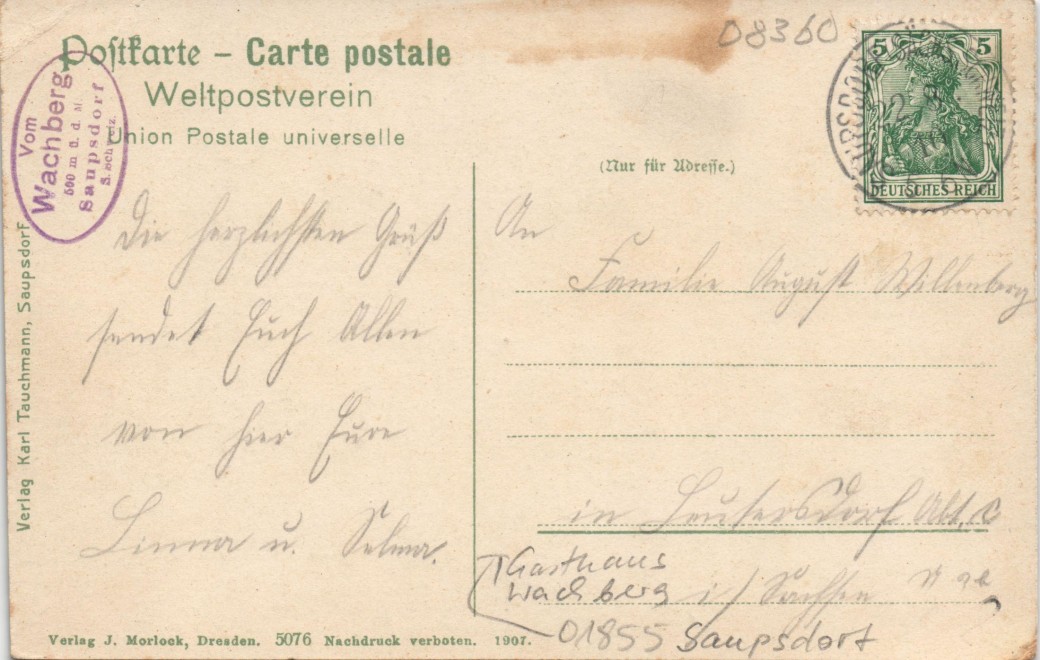 08360
Postkarte – Carte postale
Weltpostverein
Union Postale universelle
Vom
Wachberg
500 m ü. d. M.
Saupsdorf
S. Schweiz.
5 5
DEUTSCHES REICH
(Nur für Adresse.)
Die herzlichsten Grüß
sendet Euch Allen
von hier Eure
Linna u. Selma.
An
Familie August Willenberg
in Leutersdorf Abt. C
i/ Sachsen
Gasthaus
Wachberg
01855 Saupsdorf
Verlag Karl Tauchmann, Saupsdorf
Verlag J. Morlock, Dresden. 5076 Nachdruck verboten. 1907.